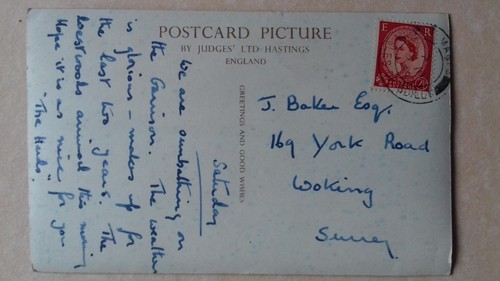 POSTCARD PICTURE
BY JUDGES' LTD HASTINGS
ENGLAND
GREETINGS AND GOOD WISHES
Saturday
We are sunbathing on
the Garrison. The weather
is glorious - makes up for
the last two years. The
Westwoods arrived this morning
Hope it is as nice for you
"The Herls"
J. Baker Esq.
169 York Road
Woking
Surrey
E R